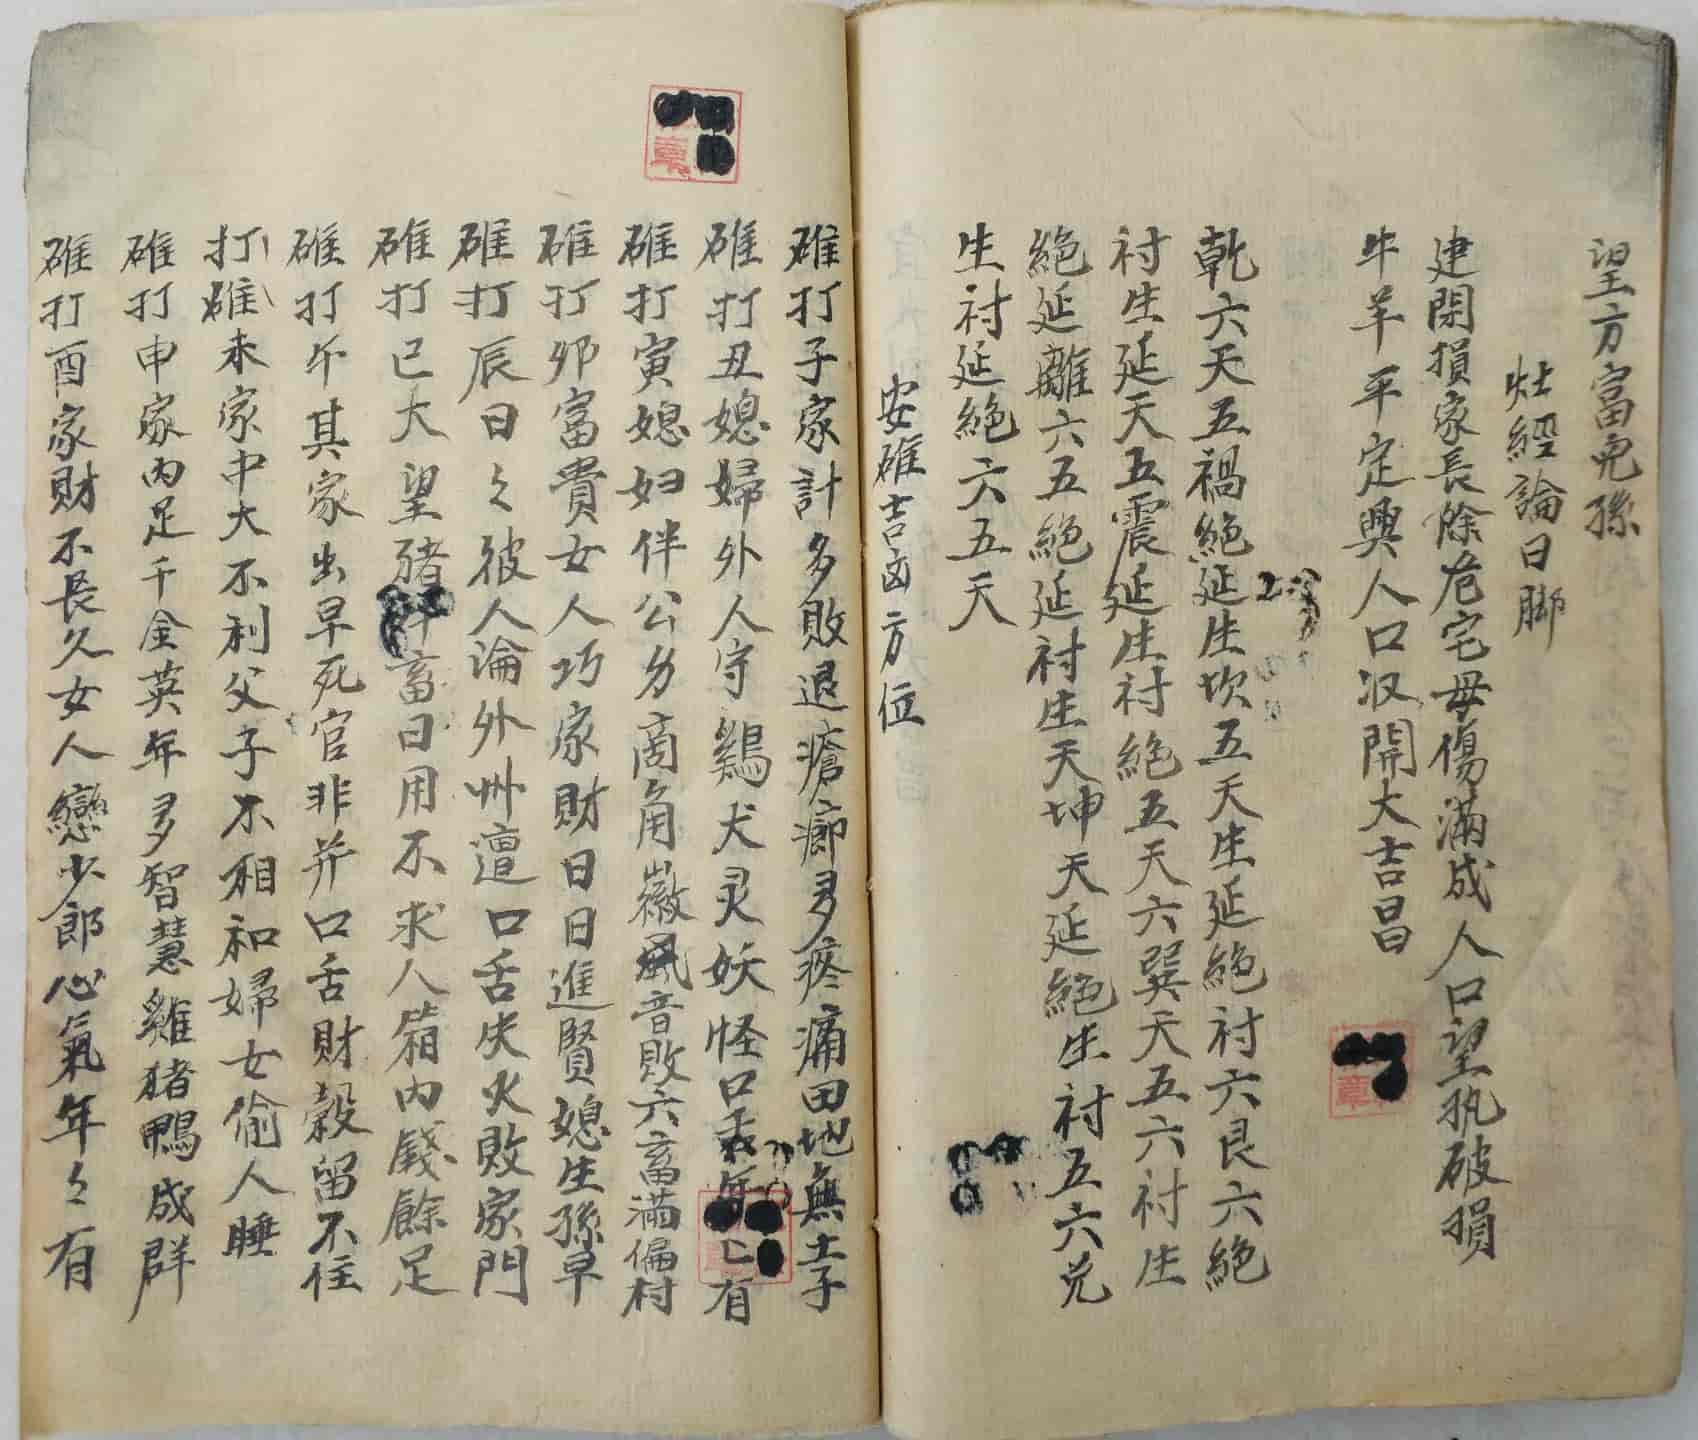 望方富免孫
灶經論日脚
建閉損家長除危宅母傷滿成人口望执破損
牛羊平定興人口汉開大吉昌
乾六天五禍絕延生坎五天生延絕衬六艮六絕
衬生延天五震延生衬絕五天六巽天五六衬生
絕延離六五絕延衬生天坤天延絕生衬五六兑
生衬延絕六五天
安碓吉凶方位
碓打子家計多敗退瘡癤多疼痛田地無士子
碓打丑媳婦外人守鷄犬灵妖怪口舌年亡有
碓打寅媳妇伴公另商角徵風音敗六畜滿偏村
碓打夘富貴女人巧家財日日進賢媳生孫早
碓打辰日々彼人淪外州遭口舌失火敗家門
碓打已大望豬畜日用不求人箱内錢餘足
碓打午其家出早死官非并口舌財穀留不住
打碓未家中大不利父子不相和婦女偷人睡
碓打申家内足千金英年多智慧雞猪鴨成群
碓打酉家財不長久女人戀少郎心氣年々有
章
章